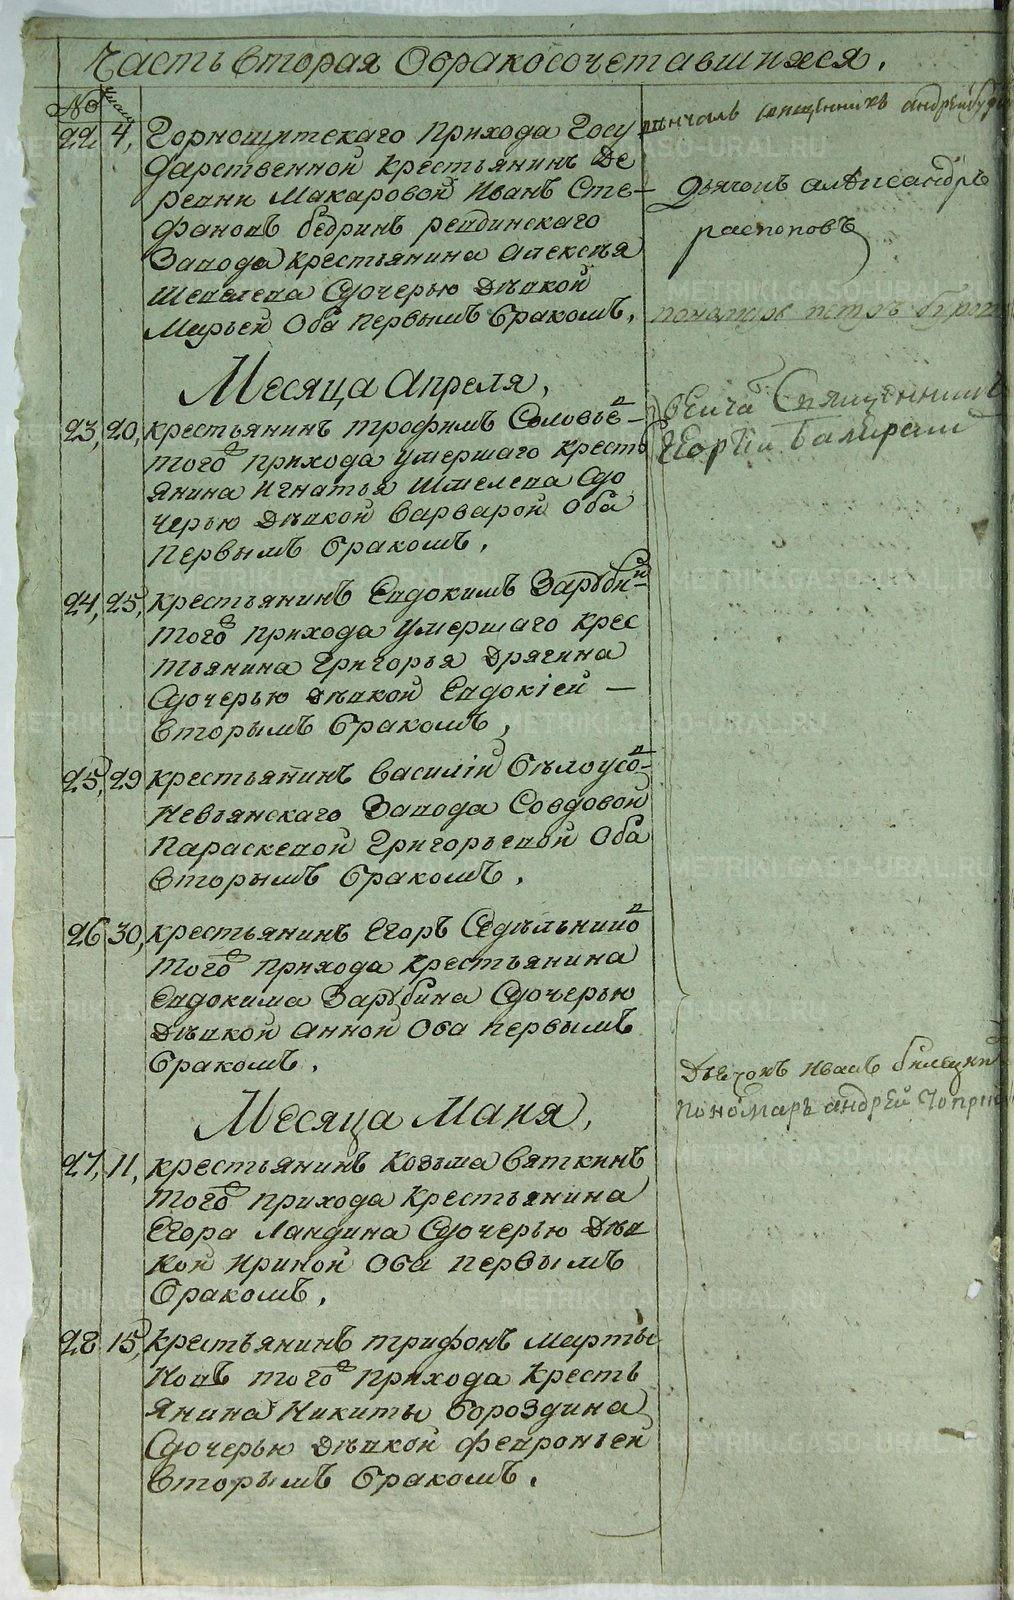 Часть вторая О бракосочетавшихся.
No число
22 4, Горнощитскаго прихода Госу
дарственной крестьянинъ де
ревни Макаровой Иванъ Сте-
фановъ бедринъ ревдинскаго
Завода крестьянина Алексѣя
Шевелева Сдочерью дѣвкой
Марьей Оба первымъ бракомъ,
вѣнчалъ священникъ андрей
Дьячокъ алѣксандръ
распоповъ
пономарь петръ
Месяца Апреля,
23, 20, крестьянинъ трофимъ Соловьёвъ
тогожъ прихода умершаго кресть
янина Игнатья Шмелева Сдо
черью дѣвкой варварой Оба
первымъ бракомъ,
Священникъ
Георгій
24, 25, крестьянинъ Евдокимъ Зарубинъ
тогожъ прихода умершаго крес
тьянина Григорья Дрягина
Сдочерью дѣвкой Евдокіей —
вторымъ бракомъ,
25, 29 крестьянинъ василій бѣлоусовъ
Невьянскаго Завода Совдовой
Параскевой Григорьевой Оба
вторымъ бракомъ,
26 30, крестьянинъ Егоръ Седѣльниковъ
тогожъ прихода крестьянина
Евдокима Зарубина Сдочерью
дѣвкой анной Оба первымъ
бракомъ,
Дьячокъ Иванъ билецкий
пономарь андрей
Месяца Маия,
27, 11, крестьянинъ Козьма вяткинъ
тогожъ прихода крестьянина
Егора Ландина Сдочерью дѣв
кой Ириной Оба первымъ
бракомъ,
28 15, крестьянинъ трифонъ марты
новъ тогожъ прихода кресть
янина Никиты бороздина
Сдочерью дѣвкой февроньей
вторымъ бракомъ.
METRIKI.GASO-URAL.RU